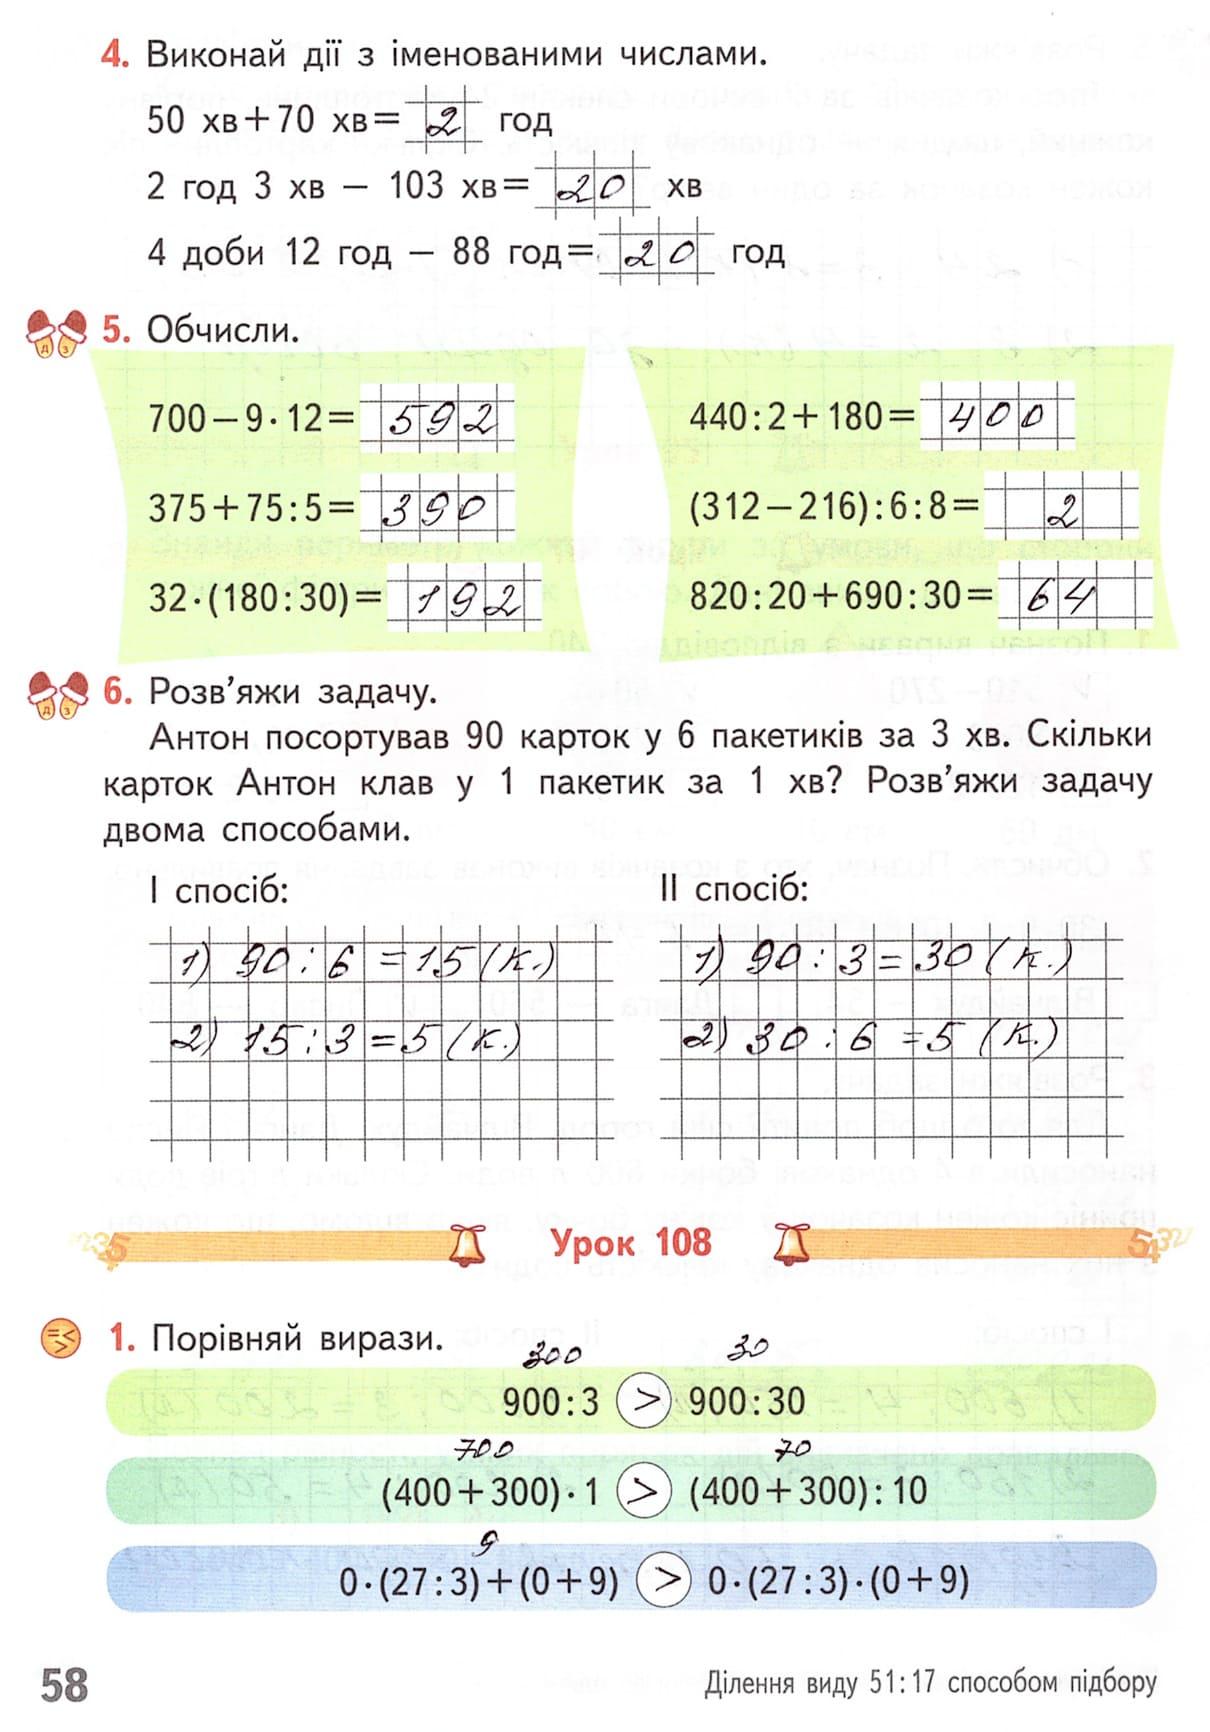 4. Виконай дії з іменованими числами.
50 хв+70 хв= 2 год
2 год 3 хв – 103 хв= 20 хв
4 доби 12 год – 88 год= 20 год
5. Обчисли.
700–9·12= 592
440:2+180= 400
375+75:5= 390
(312–216):6:8= 2
32·(180:30)= 192
820:20+690:30= 64
6. Розв'яжи задачу.
Антон посортував 90 карток у 6 пакетиків за 3 хв. Скільки
карток Антон клав у 1 пакетик за 1 хв? Розв'яжи задачу
двома способами.
I спосіб:
1) 90:6=15(к.)
2) 15:3=5(к.)
II спосіб:
1) 90:3=30(к.)
2) 30:6=5(к.)
Урок 108
1. Порівняй вирази.
300 30
900:3 > 900:30
700 70
(400+300)·1 > (400+300):10
9
0·(27:3)+(0+9) > 0·(27:3)·(0+9)
58 Ділення виду 51:17 способом підбору